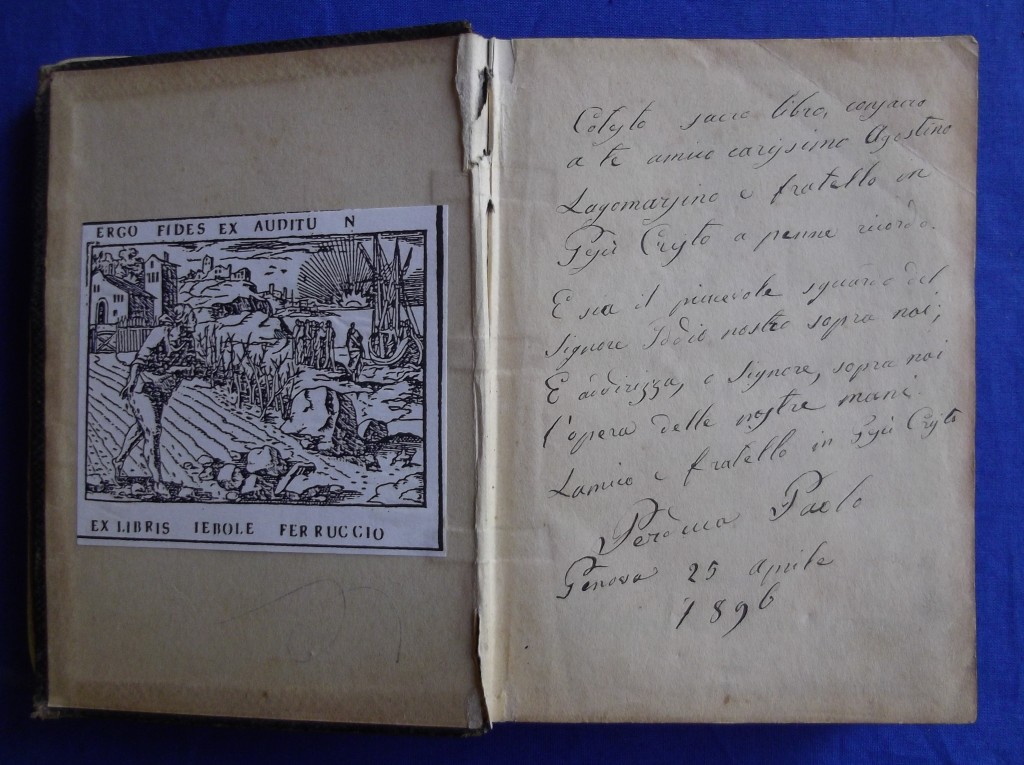 ERGO FIDES EX AUDITU N
EX LIBRIS IEBOLE FERRUCCIO
Cotesto sacro libro, consacro
a te amico carissimo Agostino
Lagomarsino e fratello in
Gesù Cristo a penne ricordo.
E sia il piacevole sguardo del
Signore Iddio nostro sopra noi;
E addirizza, o Signore, sopra noi
l'opera delle nostre mani.
Lamico e fratello in Gesù Cristo
Paolo
Genova 25 aprile
1896